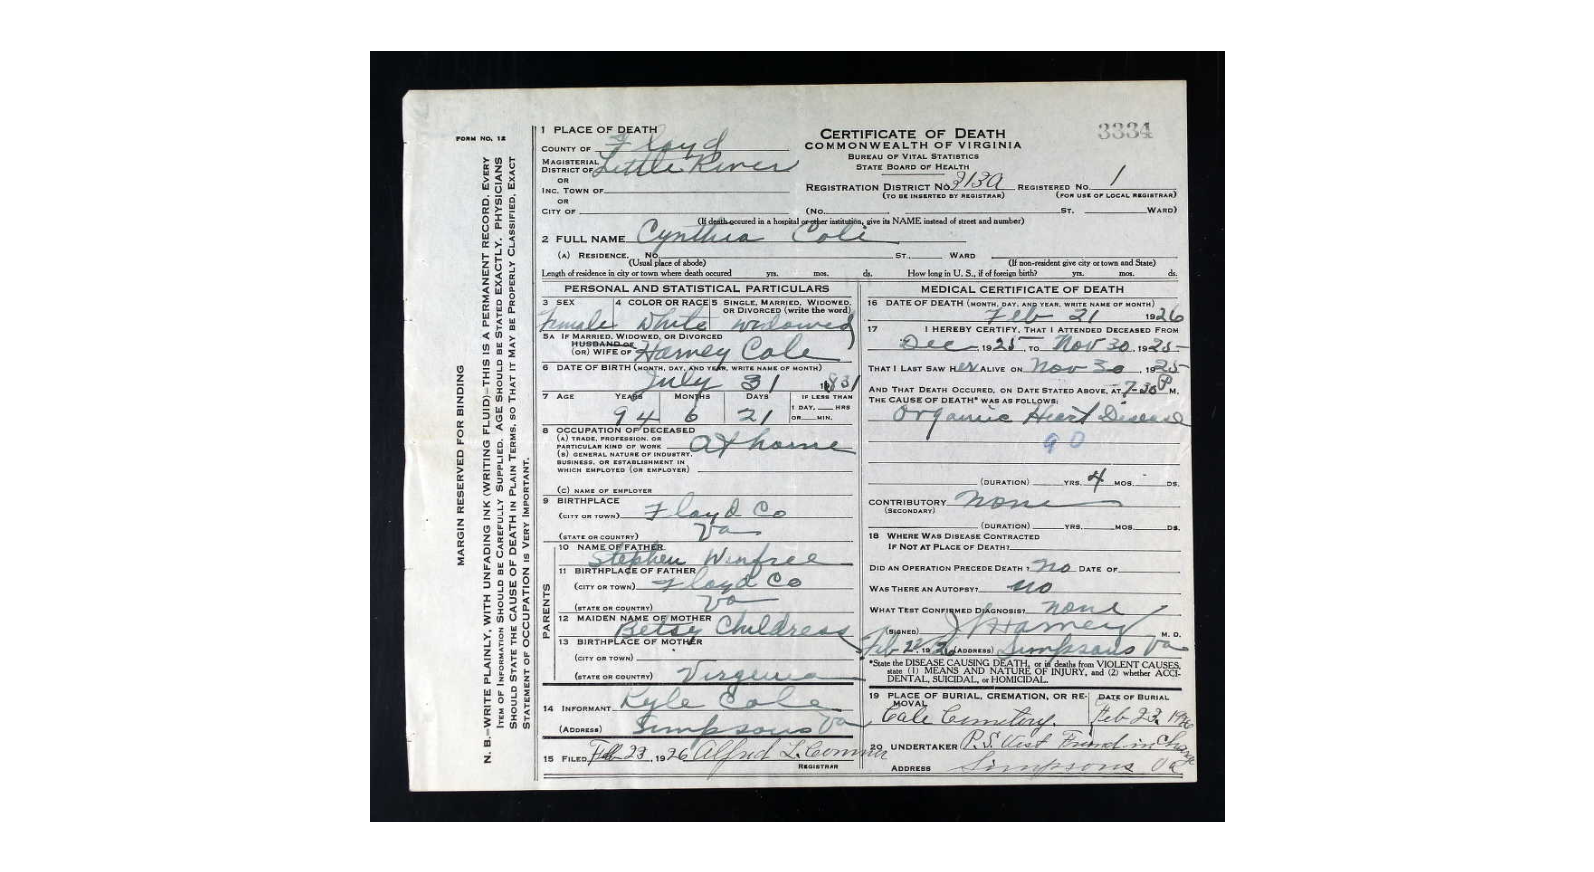 FORM NO. 12
MARGIN RESERVED FOR BINDING
N. B.—WRITE PLAINLY, WITH UNFADING INK (WRITING FLUID)—THIS IS A PERMANENT RECORD. EVERY
ITEM OF INFORMATION SHOULD BE CAREFULLY SUPPLIED. AGE SHOULD BE STATED EXACTLY. PHYSICIANS
SHOULD STATE THE CAUSE OF DEATH IN PLAIN TERMS, SO THAT IT MAY BE PROPERLY CLASSIFIED. EXACT
STATEMENT OF OCCUPATION IS VERY IMPORTANT.
1 PLACE OF DEATH
COUNTY OF Floyd
MAGISTERIAL DISTRICT OF Little River
OR
INC. TOWN OF
OR
CITY OF
CERTIFICATE OF DEATH
COMMONWEALTH OF VIRGINIA
BUREAU OF VITAL STATISTICS
STATE BOARD OF HEALTH
3334
REGISTRATION DISTRICT NO. 313A REGISTERED NO. 1
(TO BE INSERTED BY REGISTRAR) (FOR USE OF LOCAL REGISTRAR)
(No. ST. WARD)
(If death occured in a hospital or other institution, give its NAME instead of street and number)
2 FULL NAME Cynthia Cole
(A) RESIDENCE. No. ST., WARD
(Usual place of abode) (If non-resident give city or town and State)
Length of residence in city or town where death occured yrs. mos. ds. How long in U. S., if of foreign birth? yrs. mos. ds.
PERSONAL AND STATISTICAL PARTICULARS
3 SEX 4 COLOR OR RACE 5 SINGLE, MARRIED, WIDOWED, OR DIVORCED (write the word)
Female White widowed
5A IF MARRIED, WIDOWED, OR DIVORCED
HUSBAND OF
(OR) WIFE OF Harvey Cole
6 DATE OF BIRTH (MONTH, DAY, AND YEAR, WRITE NAME OF MONTH)
July 31 1831
7 AGE YEARS MONTHS DAYS IF LESS THAN
1 DAY, HRS
OR MIN.
94 6 21
8 OCCUPATION OF DECEASED
(A) TRADE, PROFESSION, OR
PARTICULAR KIND OF WORK At home
(B) GENERAL NATURE OF INDUSTRY,
BUSINESS, OR ESTABLISHMENT IN
WHICH EMPLOYED (OR EMPLOYER)
(C) NAME OF EMPLOYER
9 BIRTHPLACE
(CITY OR TOWN) Floyd Co
(STATE OR COUNTRY) Va
PARENTS
10 NAME OF FATHER
Stephen Winfree
11 BIRTHPLACE OF FATHER
(CITY OR TOWN) Floyd Co
(STATE OR COUNTRY) Va
12 MAIDEN NAME OF MOTHER
Betsy Childress
13 BIRTHPLACE OF MOTHER
(CITY OR TOWN)
(STATE OR COUNTRY) Virginia
14 INFORMANT Kyle Cole
(ADDRESS) Simpsons Va
15 FILED Feb 23, 1926 Alfred L. Conner
REGISTRAR
MEDICAL CERTIFICATE OF DEATH
16 DATE OF DEATH (MONTH, DAY, AND YEAR, WRITE NAME OF MONTH)
Feb 21 1926
17 I HEREBY CERTIFY, THAT I ATTENDED DECEASED FROM
Dec, 1925, TO Nov 30, 1925
THAT I LAST SAW HER ALIVE ON Nov 30, 1925
AND THAT DEATH OCCURED, ON DATE STATED ABOVE, AT 7-30 P M.
THE CAUSE OF DEATH* WAS AS FOLLOWS:
Organic Heart Disease
90
(DURATION) YRS. 4 MOS. DS.
CONTRIBUTORY none
(SECONDARY)
(DURATION) YRS. MOS. DS.
18 WHERE WAS DISEASE CONTRACTED
IF NOT AT PLACE OF DEATH?
DID AN OPERATION PRECEDE DEATH? no DATE OF
WAS THERE AN AUTOPSY? no
WHAT TEST CONFIRMED DIAGNOSIS? none
(SIGNED) M. D.
Feb, 1926 (ADDRESS) Simpsons Va
*State the DISEASE CAUSING DEATH, or in deaths from VIOLENT CAUSES,
state (1) MEANS AND NATURE OF INJURY, and (2) whether ACCI-
DENTAL, SUICIDAL, or HOMICIDAL.
19 PLACE OF BURIAL, CREMATION, OR RE-MOVAL DATE OF BURIAL
Cole Cemetery. Feb 23, 1926
20 UNDERTAKER P.S. West Friend in Charge
ADDRESS Simpsons Va